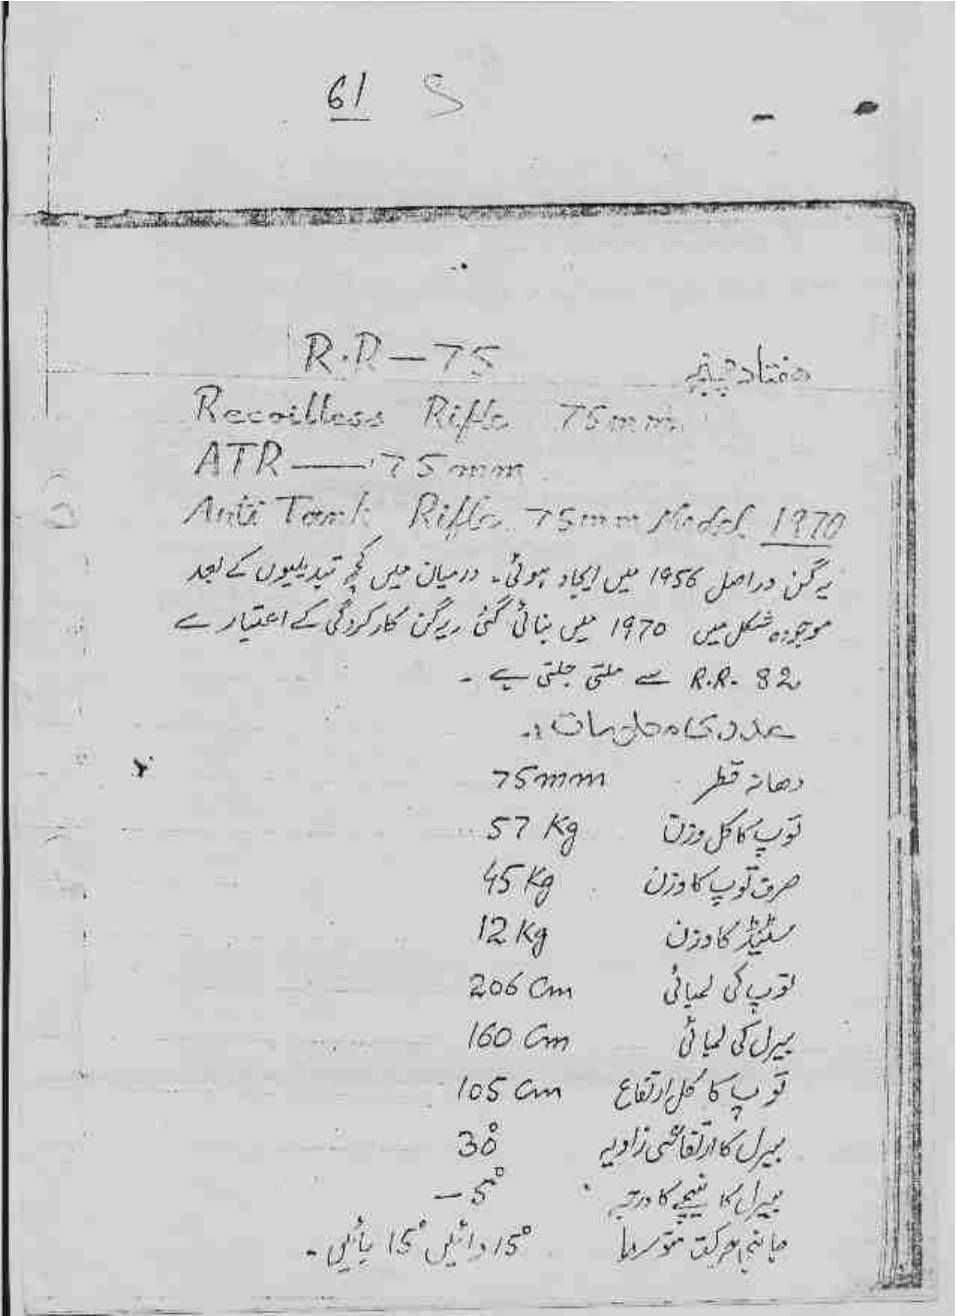 61 S
R.R — 75 هفتاد پنج
Recoilless Rifle 75mm
ATR — 75mm
Anti Tank Rifle 75mm Model 1970
یہ گن دراصل 1956 میں ایجاد ہوئی۔ درمیان میں کچھ تبدیلیوں کے بعد
موجودہ شکل میں 1970 میں بنائی گئی یہ گن کارکردگی کے اعتبار سے
R.R. 82 سے ملتی جلتی ہے۔
عددی معلومات:
دھانہ قطر 75mm
توپ کا کل وزن 57 Kg
صرف توپ کا وزن 45 Kg
سٹینڈ کا وزن 12 Kg
توپ کی لمبائی 206 Cm
بیرل کی لمبائی 160 Cm
توپ کا کل ارتفاع 105 Cm
بیرل کا ارتفاعی زاویہ 30°
بیرل کا نیچے کا درجہ -5°
15° دائیں 15° بائیں۔